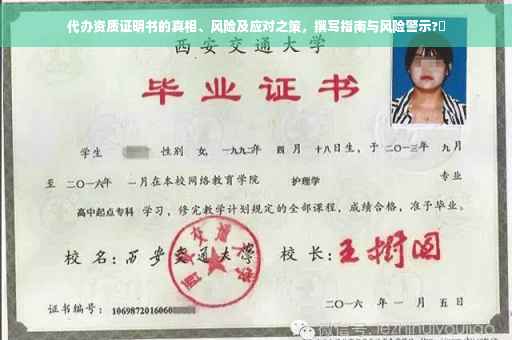 代办资质证明书的真相、风险及应对之策，撰写指南与风险警示?
西安交通大学
毕业证书
学生 性别 女，一九九二年 四 月 十八日生，于 二〇一三年 九月
至 二〇一六年 一月在本校网络教育学院 护理学 专业
高中起点专科 学习，修完教学计划规定的全部课程，成绩合格，准予毕业。
校 名：西安交通大学 校 长：王树国
证书编号：1069872016060
二〇一六 年 一 月 五 日
微信号: jezhihuiyoujiao